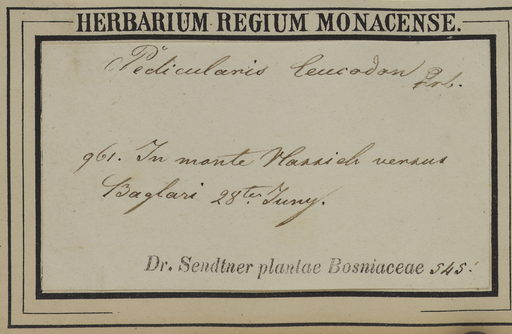 HERBARIUM REGIUM MONACENSE.
Pedicularis leucodon Grb.
961. In monte Vlassich versus
Baglari 28ter Juny.
Dr. Sendtner plantae Bosniaceae 545.